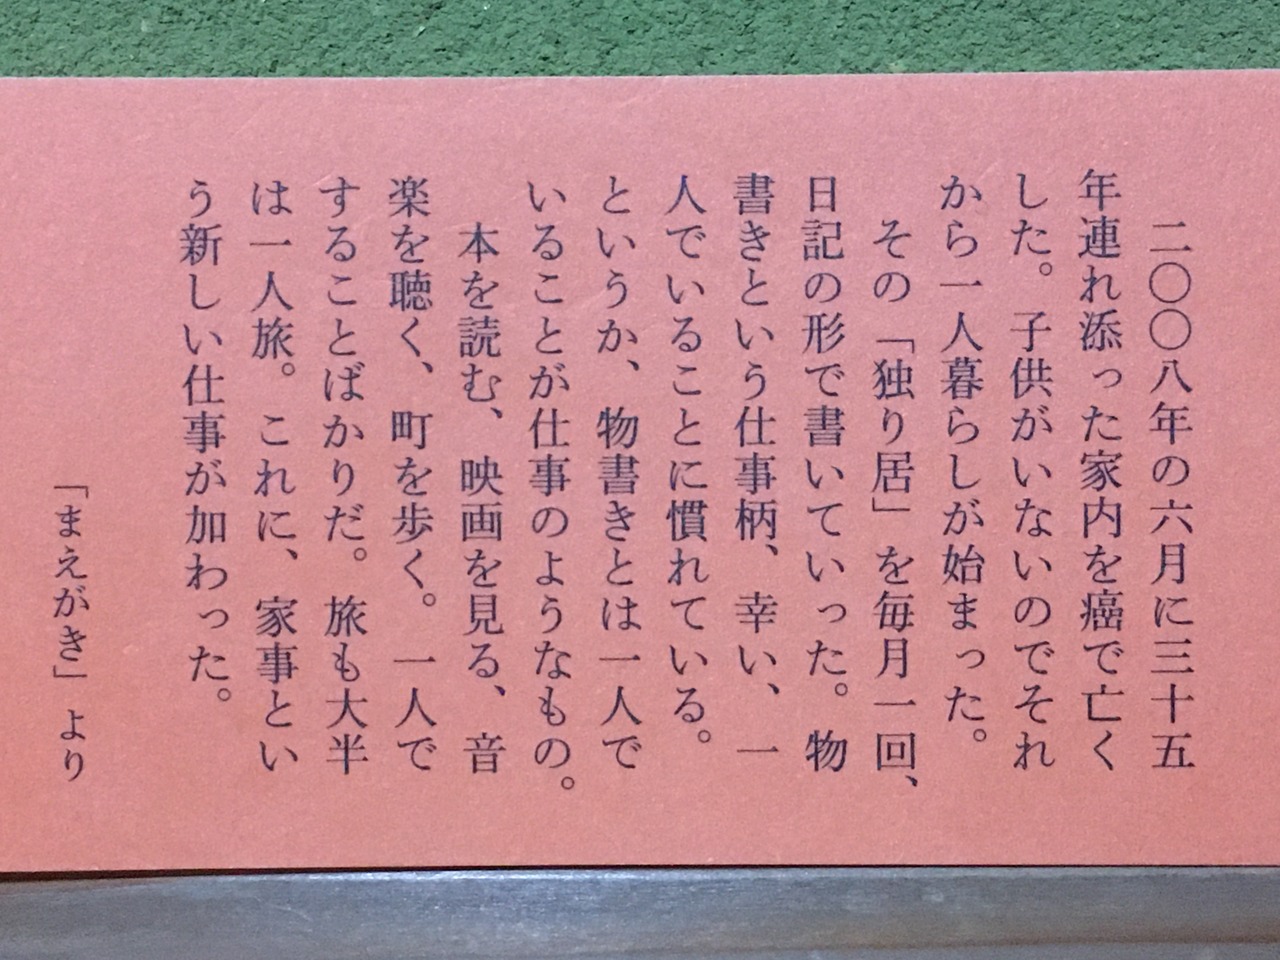 二〇〇八年の六月に三十五
年連れ添った家内を癌で亡く
した。子供がいないのでそれ
から一人暮らしが始まった。
　その「独り居」を毎月一回、
日記の形で書いていった。物
書きという仕事柄、幸い、一
人でいることに慣れている。
というか、物書きとは一人で
いることが仕事のようなもの。
　本を読む、映画を見る、音
楽を聴く、町を歩く。一人で
することばかりだ。旅も大半
は一人旅。これに、家事とい
う新しい仕事が加わった。
「まえがき」より